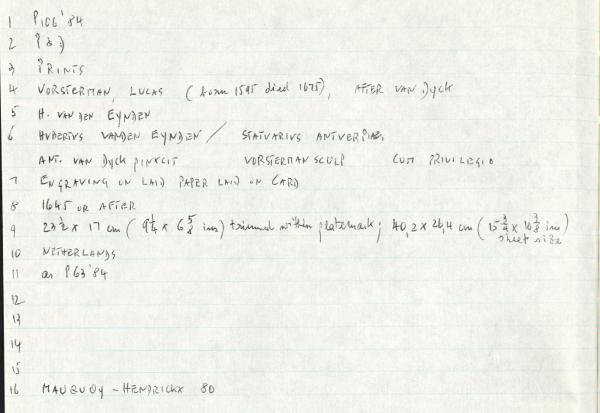 1 P106'84
2 P83)
3 PRINTS
4 VORSTERMAN, LUCAS (born 1595 died 1675), AFTER VAN DYCK
5 H. VAN DEN EYNDEN
6 HUBERTUS VANDEN EYNDEN / STATUARIUS ANTVERPIAE,
ANT. VAN DYCK PINXCIT VORSTERMAN SCULP CUM PRIVILEGIO
7 ENGRAVING ON LAID PAPER LAID ON CARD
8 1645 OR AFTER
9 23 1/2 x 17 cm (9 1/4 x 6 5/8 ins) trimmed within platemark; 40,2 x 26,4 cm (15 3/4 x 10 3/8 ins)
sheet size
10 NETHERLANDS
11 as P63'84
12
13
14
15
16 MAUQUOY-HENDRICKX 80